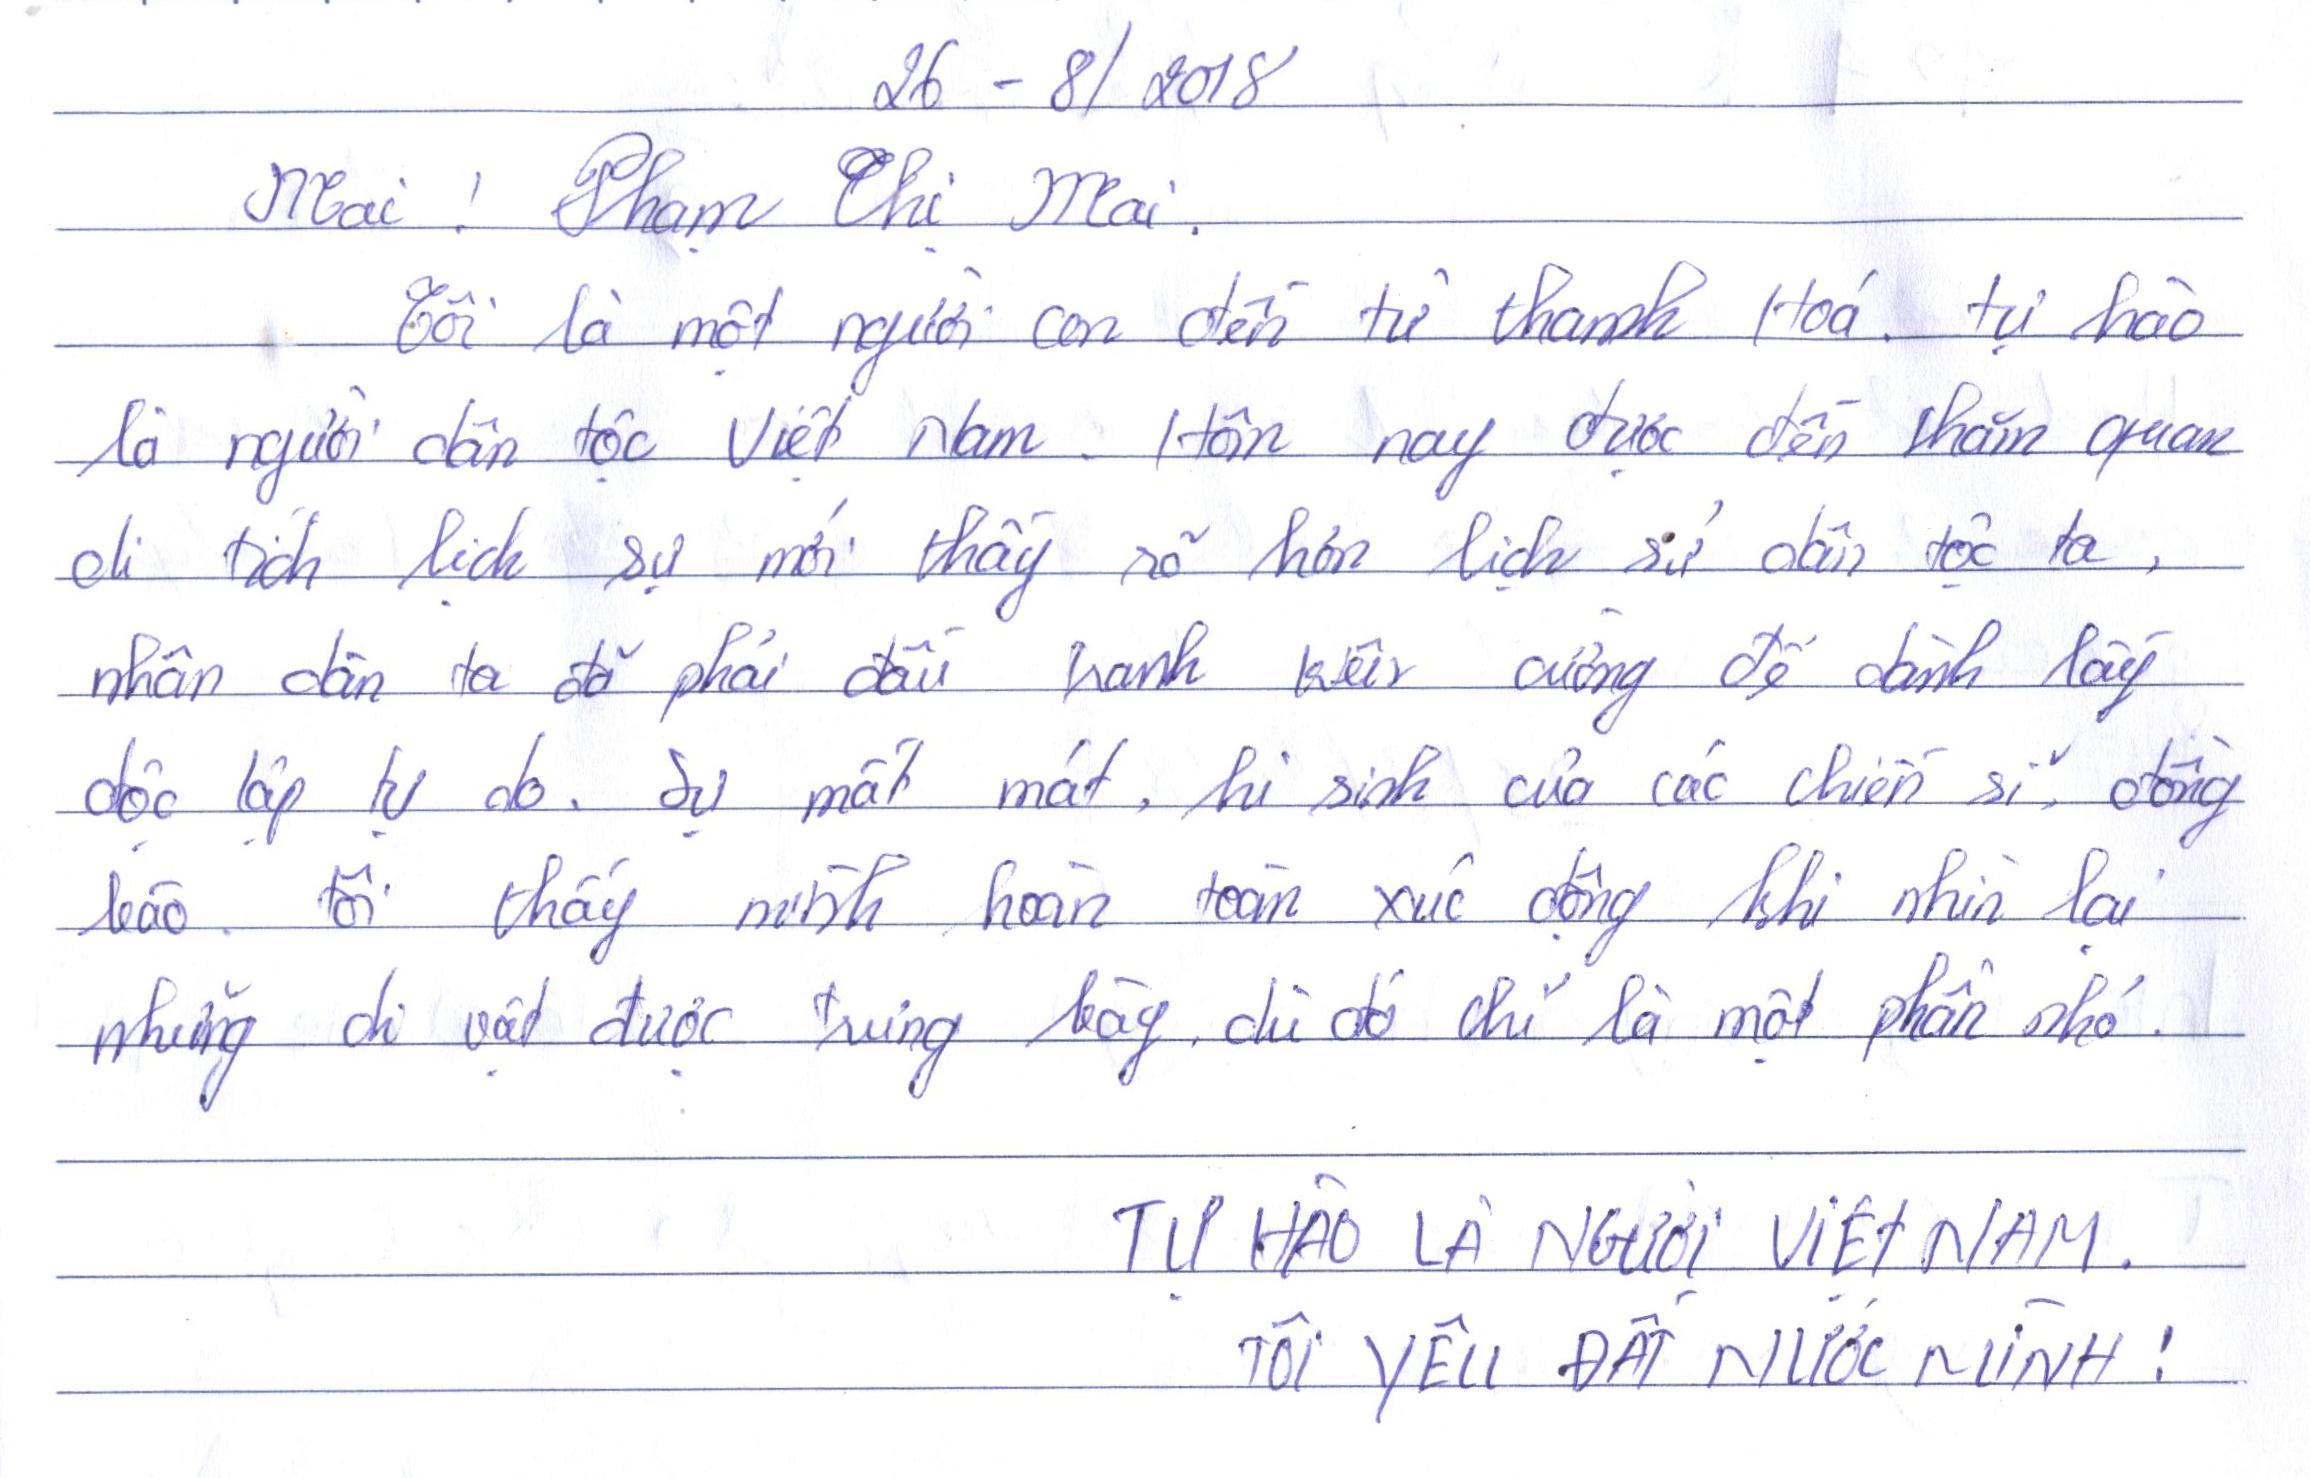 26 - 8/2018
Mai ! Phạm Thị Mai.
Tôi là một người con đến từ thanh Hoá. tự hào
là người dân tộc Việt Nam. Hôm nay được đến thăm quan
di tích lịch sự mới thấy rõ hơn lịch sử dân tộc ta,
nhân dân ta đã phải đấu tranh kiên cường để dành lấy
độc lập tự do. Sự mất mát, hi sinh của các chiến sĩ, đồng
bào. tôi thấy mình hoàn toàn xúc động khi nhìn lại
những di vật được trưng bày, dù đó chỉ là một phần nhỏ.
TỰ HÀO LÀ NGƯỜI VIỆT NAM.
TÔI YÊU ĐẤT NƯỚC MÌNH!